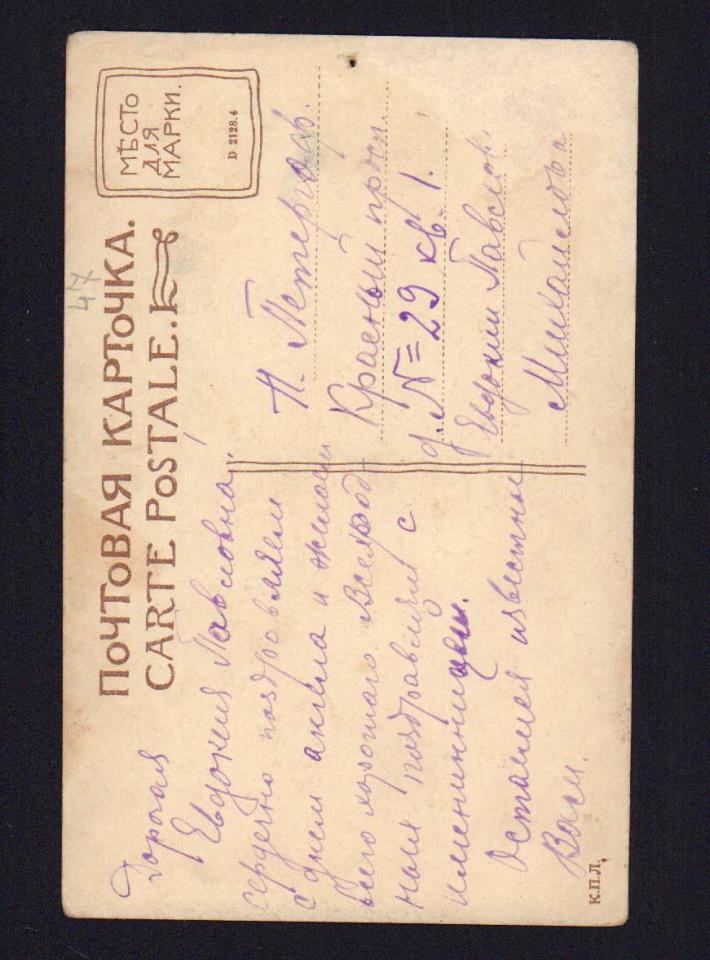 ПОЧТОВАЯ КАРТОЧКА.
CARTE POSTALE.
МѢСТО
ДЛЯ
МАРКИ.
D 2128.4
47
Дорогая
Евдокия Павловна,
сердечно поздравляем
с днем ангела и желаем
всего хорошего
наш поздравляем с
именинницей.
Остаемся известные
Вам.
Н. Петергоф.
Красный просп.
д. № 29 кв. 1.
Евдокии Павлов.
Михайлова
К.П.Л.